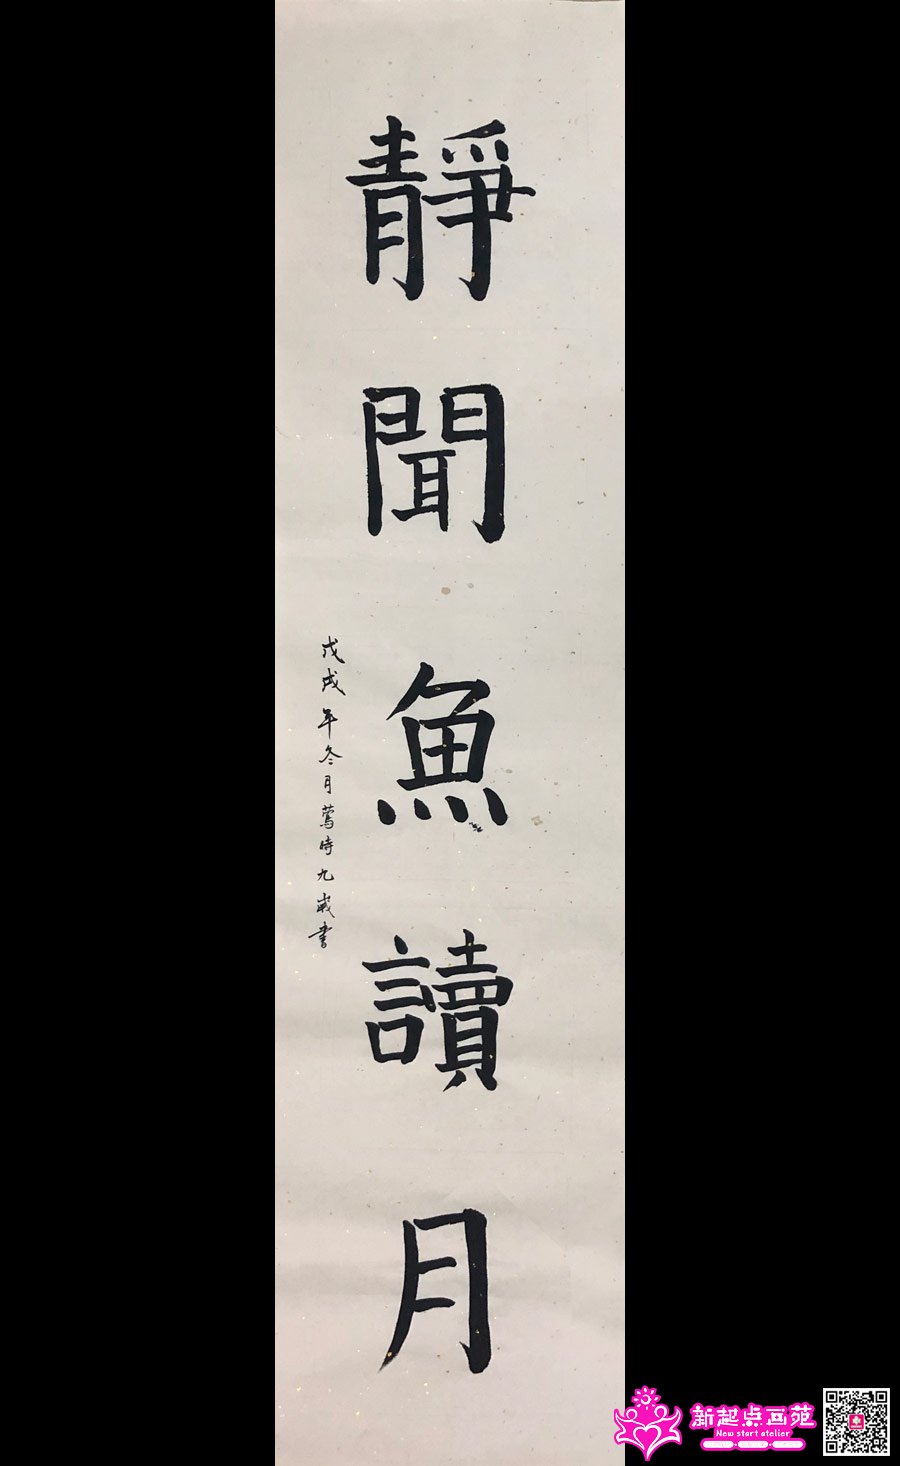 靜聞魚讀月
戊戌年冬月鶯時九歲書
新起点画苑
New start atelier